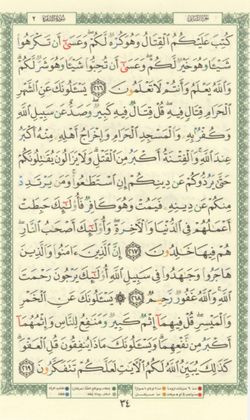 كُتِبَ عَلَيْكُمُ الْقِتَالُ وَهُوَ كُرْهٌ لَكُمْ وَعَسَىٰ أَنْ تَكْرَهُوا
شَيْئًا وَهُوَ خَيْرٌ لَكُمْ وَعَسَىٰ أَنْ تُحِبُّوا شَيْئًا وَهُوَ شَرٌّ لَكُمْ
وَاللَّهُ يَعْلَمُ وَأَنْتُمْ لَا تَعْلَمُونَ ٢١٦ يَسْئَلُونَكَ عَنِ الشَّهْرِ
الْحَرَامِ قِتَالٍ فِيهِ قُلْ قِتَالٌ فِيهِ كَبِيرٌ وَصَدٌّ عَنْ سَبِيلِ اللَّهِ
وَكُفْرٌ بِهِ وَالْمَسْجِدِ الْحَرَامِ وَإِخْرَاجُ أَهْلِهِ مِنْهُ أَكْبَرُ
عِنْدَ اللَّهِ وَالْفِتْنَةُ أَكْبَرُ مِنَ الْقَتْلِ وَلَا يَزَالُونَ يُقَاتِلُونَكُمْ
حَتَّىٰ يَرُدُّوكُمْ عَنْ دِينِكُمْ إِنِ اسْتَطَاعُوا وَمَنْ يَرْتَدِدْ
مِنْكُمْ عَنْ دِينِهِ فَيَمُتْ وَهُوَ كَافِرٌ فَأُولَٰئِكَ حَبِطَتْ
أَعْمَالُهُمْ فِي الدُّنْيَا وَالْآخِرَةِ وَأُولَٰئِكَ أَصْحَابُ النَّارِ
هُمْ فِيهَا خَالِدُونَ ٢١٧ إِنَّ الَّذِينَ آمَنُوا وَالَّذِينَ
هَاجَرُوا وَجَاهَدُوا فِي سَبِيلِ اللَّهِ أُولَٰئِكَ يَرْجُونَ رَحْمَتَ
اللَّهِ وَاللَّهُ غَفُورٌ رَحِيمٌ ٢١٨ يَسْئَلُونَكَ عَنِ الْخَمْرِ
وَالْمَيْسِرِ قُلْ فِيهِمَا إِثْمٌ كَبِيرٌ وَمَنَافِعُ لِلنَّاسِ وَإِثْمُهُمَا
أَكْبَرُ مِنْ نَفْعِهِمَا وَيَسْئَلُونَكَ مَاذَا يُنْفِقُونَ قُلِ الْعَفْوَ
كَذَٰلِكَ يُبَيِّنُ اللَّهُ لَكُمُ الْآيَاتِ لَعَلَّكُمْ تَتَفَكَّرُونَ ٢١٩
٣٤